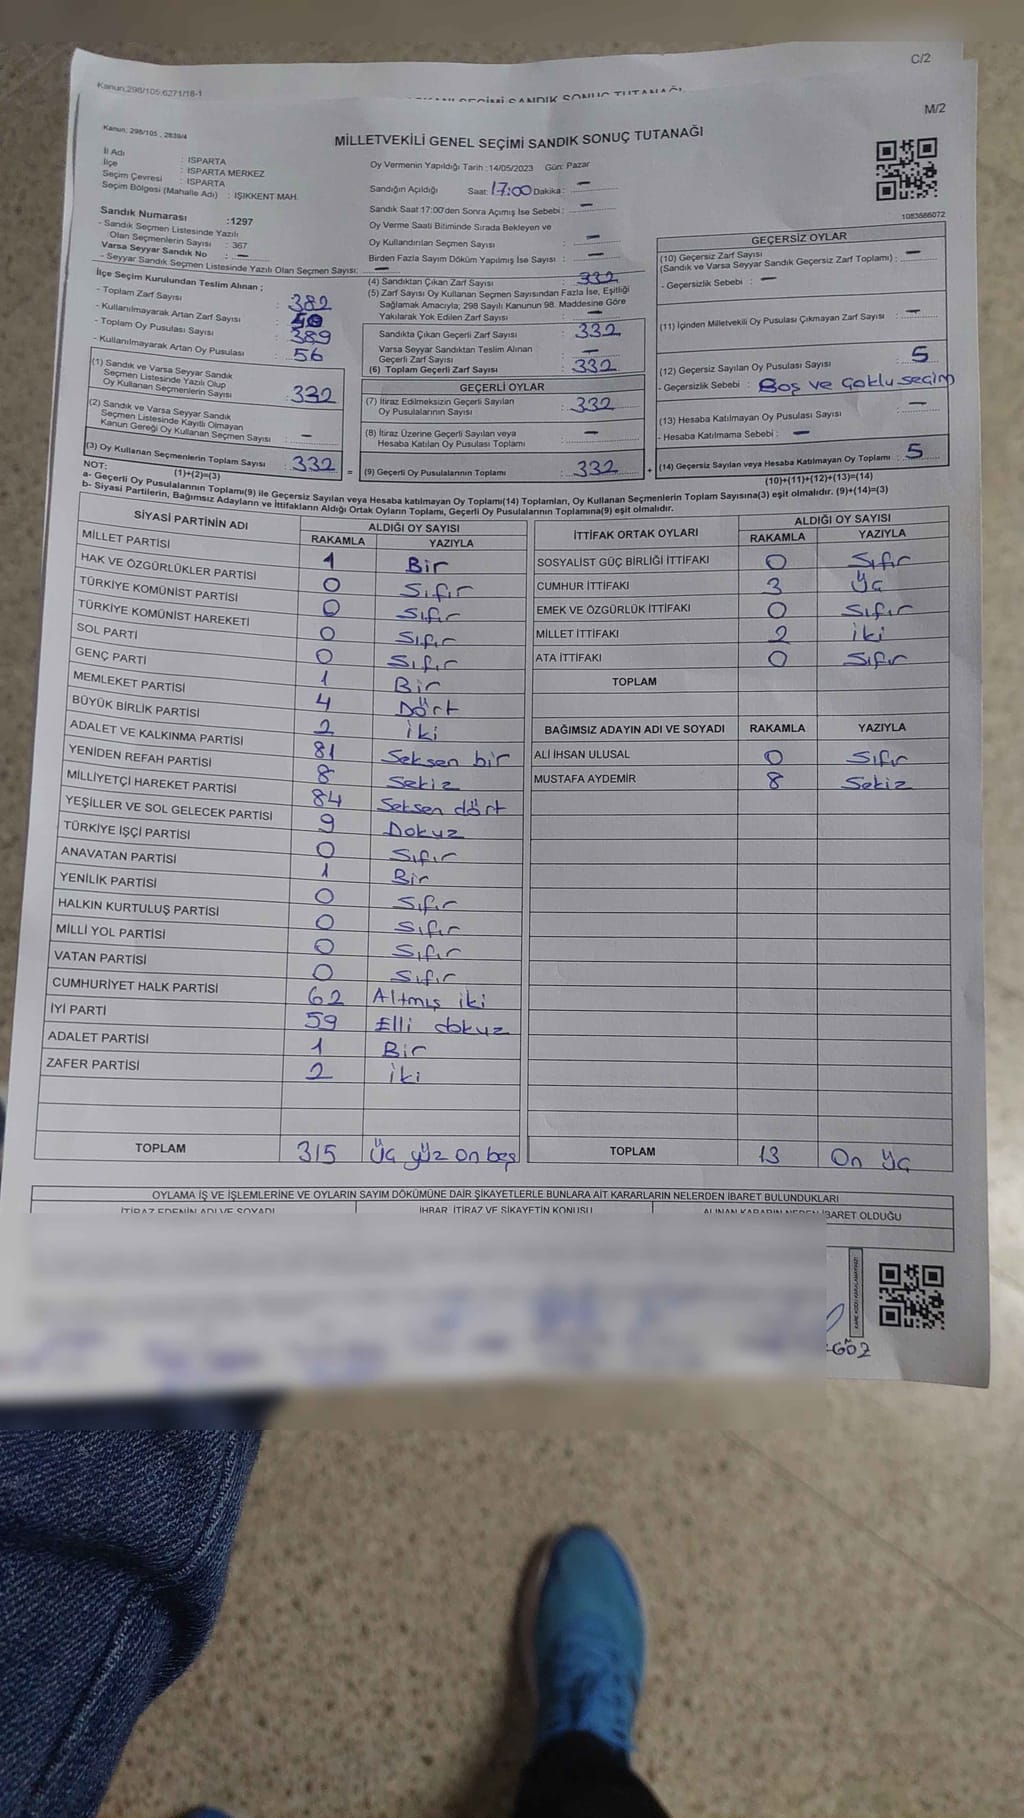 C/2
Kanun,298/105,6271/18-1
M/2
Kanun: 298/105 , 2839/4
MİLLETVEKİLİ GENEL SEÇİMİ SANDIK SONUÇ TUTANAĞI
İl Adı : ISPARTA
İlçe : ISPARTA MERKEZ
Seçim Çevresi : ISPARTA
Seçim Bölgesi (Mahalle Adı) : IŞIKKENT MAH.
Sandık Numarası :1297
- Sandık Seçmen Listesinde Yazılı
Olan Seçmenlerin Sayısı : 367
Varsa Seyyar Sandık No : —
- Seyyar Sandık Seçmen Listesinde Yazılı Olan Seçmen Sayısı: —
Oy Vermenin Yapıldığı Tarih :14/05/2023 Gün: Pazar
Sandığın Açıldığı Saat: 17:00 Dakika : —
Sandık Saat 17:00'den Sonra Açımış İse Sebebi : —
Oy Verme Saati Bitiminde Sırada Bekleyen ve
Oy Kullandırılan Seçmen Sayısı : —
Birden Fazla Sayım Döküm Yapılmış İse Sayısı : —
1083686072
İlçe Seçim Kurulundan Teslim Alınan ;
- Toplam Zarf Sayısı : 382
- Kullanılmayarak Artan Zarf Sayısı : 50
- Toplam Oy Pusulası Sayısı : 389
- Kullanılmayarak Artan Oy Pusulası : 56
(1) Sandık ve Varsa Seyyar Sandık
Seçmen Listesinde Yazılı Olup
Oy Kullanan Seçmenlerin Sayısı : 332
(2) Sandık ve Varsa Seyyar Sandık
Seçmen Listesinde Kayıtlı Olmayan
Kanun Gereği Oy Kullanan Seçmen Sayısı : —
(3) Oy Kullanan Seçmenlerin Toplam Sayısı : 332
(1)+(2)=(3)
(4) Sandıktan Çıkan Zarf Sayısı : 332
(5) Zarf Sayısı Oy Kullanan Seçmen Sayısından Fazla İse, Eşitliği
Sağlamak Amacıyla; 298 Sayılı Kanunun 98. Maddesine Göre
Yakılarak Yok Edilen Zarf Sayısı : —
Sandıkta Çıkan Geçerli Zarf Sayısı : 332
Varsa Seyyar Sandıktan Teslim Alınan
Geçerli Zarf Sayısı : —
(6) Toplam Geçerli Zarf Sayısı : 332
GEÇERLİ OYLAR
(7) İtiraz Edilmeksizin Geçerli Sayılan
Oy Pusulalarının Sayısı : 332
(8) İtiraz Üzerine Geçerli Sayılan veya
Hesaba Katılan Oy Pusulası Toplamı : —
= (9) Geçerli Oy Pusulalarının Toplamı : 332 +
GEÇERSİZ OYLAR
(10) Geçersiz Zarf Sayısı
(Sandık ve Varsa Seyyar Sandık Geçersiz Zarf Toplamı) : —
- Geçersizlik Sebebi : —
(11) İçinden Milletvekili Oy Pusulası Çıkmayan Zarf Sayısı : —
(12) Geçersiz Sayılan Oy Pusulası Sayısı : 5
- Geçersizlik Sebebi : Boş ve Çoklu seçim
(13) Hesaba Katılmayan Oy Pusulası Sayısı : —
- Hesaba Katılmama Sebebi : —
(14) Geçersiz Sayılan veya Hesaba Katılmayan Oy Toplamı : 5
(10)+(11)+(12)+(13)=(14)
NOT:
a- Geçerli Oy Pusulalarının Toplamı(9) ile Geçersiz Sayılan veya Hesaba katılmayan Oy Toplamı(14) Toplamları, Oy Kullanan Seçmenlerin Toplam Sayısına(3) eşit olmalıdır. (9)+(14)=(3)
b- Siyasi Partilerin, Bağımsız Adayların ve İttifakların Aldığı Ortak Oyların Toplamı, Geçerli Oy Pusulalarının Toplamına(9) eşit olmalıdır.
SİYASİ PARTİNİN ADI ALDIĞI OY SAYISI
RAKAMLA YAZIYLA
MİLLET PARTİSİ 1 Bir
HAK VE ÖZGÜRLÜKLER PARTİSİ 0 Sıfır
TÜRKİYE KOMÜNİST PARTİSİ 0 Sıfır
TÜRKİYE KOMÜNİST HAREKETİ 0 Sıfır
SOL PARTİ 0 Sıfır
GENÇ PARTİ 1 Bir
MEMLEKET PARTİSİ 4 Dört
BÜYÜK BİRLİK PARTİSİ 2 iki
ADALET VE KALKINMA PARTİSİ 81 Seksen bir
YENİDEN REFAH PARTİSİ 8 Sekiz
MİLLİYETÇİ HAREKET PARTİSİ 84 Seksen dört
YEŞİLLER VE SOL GELECEK PARTİSİ 9 Dokuz
TÜRKİYE İŞÇİ PARTİSİ 0 Sıfır
ANAVATAN PARTİSİ 1 Bir
YENİLİK PARTİSİ 0 Sıfır
HALKIN KURTULUŞ PARTİSİ 0 Sıfır
MİLLİ YOL PARTİSİ 0 Sıfır
VATAN PARTİSİ 0 Sıfır
CUMHURİYET HALK PARTİSİ 62 Altmış iki
İYİ PARTİ 59 Elli dokuz
ADALET PARTİSİ 1 Bir
ZAFER PARTİSİ 2 iki
TOPLAM 315 Üç yüz on beş
İTTİFAK ORTAK OYLARI ALDIĞI OY SAYISI
RAKAMLA YAZIYLA
SOSYALİST GÜÇ BİRLİĞİ İTTİFAKI 0 Sıfır
CUMHUR İTTİFAKI 3 Üç
EMEK VE ÖZGÜRLÜK İTTİFAKI 0 Sıfır
MİLLET İTTİFAKI 2 iki
ATA İTTİFAKI 0 Sıfır
TOPLAM
BAĞIMSIZ ADAYIN ADI VE SOYADI RAKAMLA YAZIYLA
ALİ İHSAN ULUSAL 0 Sıfır
MUSTAFA AYDEMİR 8 Sekiz
TOPLAM 13 On Üç
OYLAMA İŞ VE İŞLEMLERİNE VE OYLARIN SAYIM DÖKÜMÜNE DAİR ŞİKAYETLERLE BUNLARA AİT KARARLARIN NELERDEN İBARET BULUNDUKLARI
İTİRAZ EDENİN ADI VE SOYADI İHBAR, İTİRAZ VE ŞİKAYETİN KONUSU ALINAN KARARIN NEDEN İBARET OLDUĞU